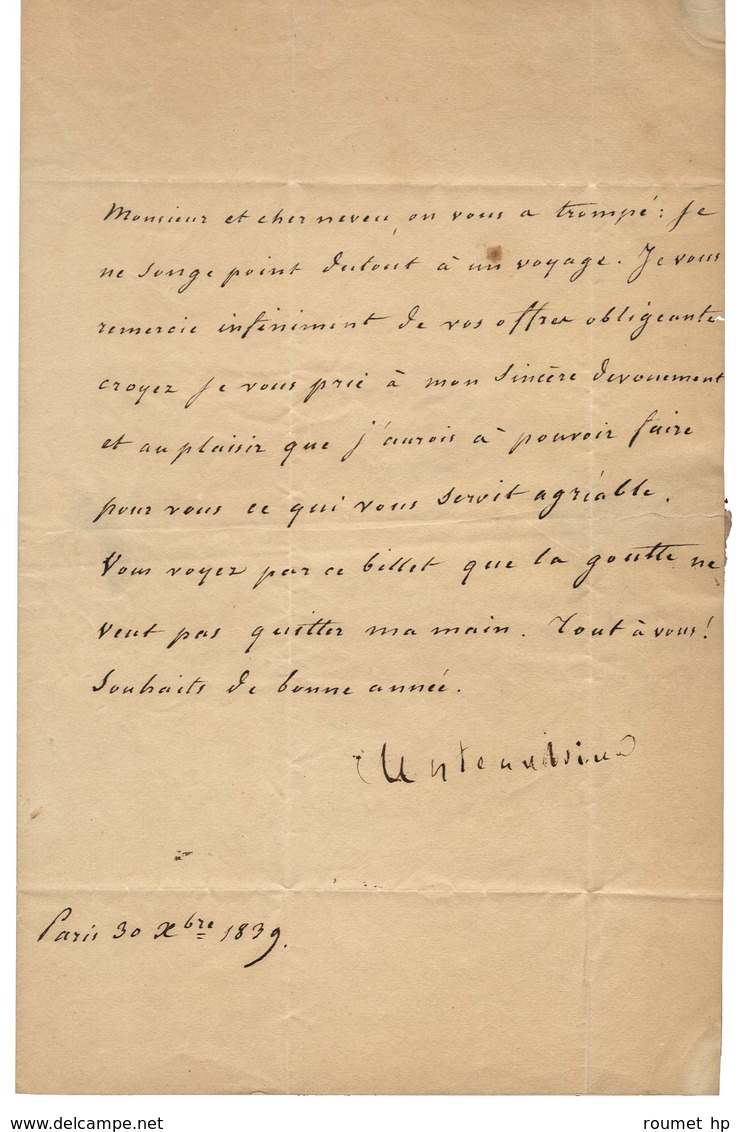 Monsieur et cher neveu, on vous a trompé : je
ne songe point dutout à un voyage. Je vous
remercie infiniment de vos offres obligeantes
croyez je vous prie à mon sincère devouement
et au plaisir que j'aurois à pouvoir faire
pour vous ce qui vous seroit agréable.
Vous voyez par ce billet que la goutte ne
veut pas quitter ma main. Tout à vous!
Souhaits de bonne année.
Chateaubriand
Paris 30 Xbre 1839.
www.delcampe.net
roumet hp